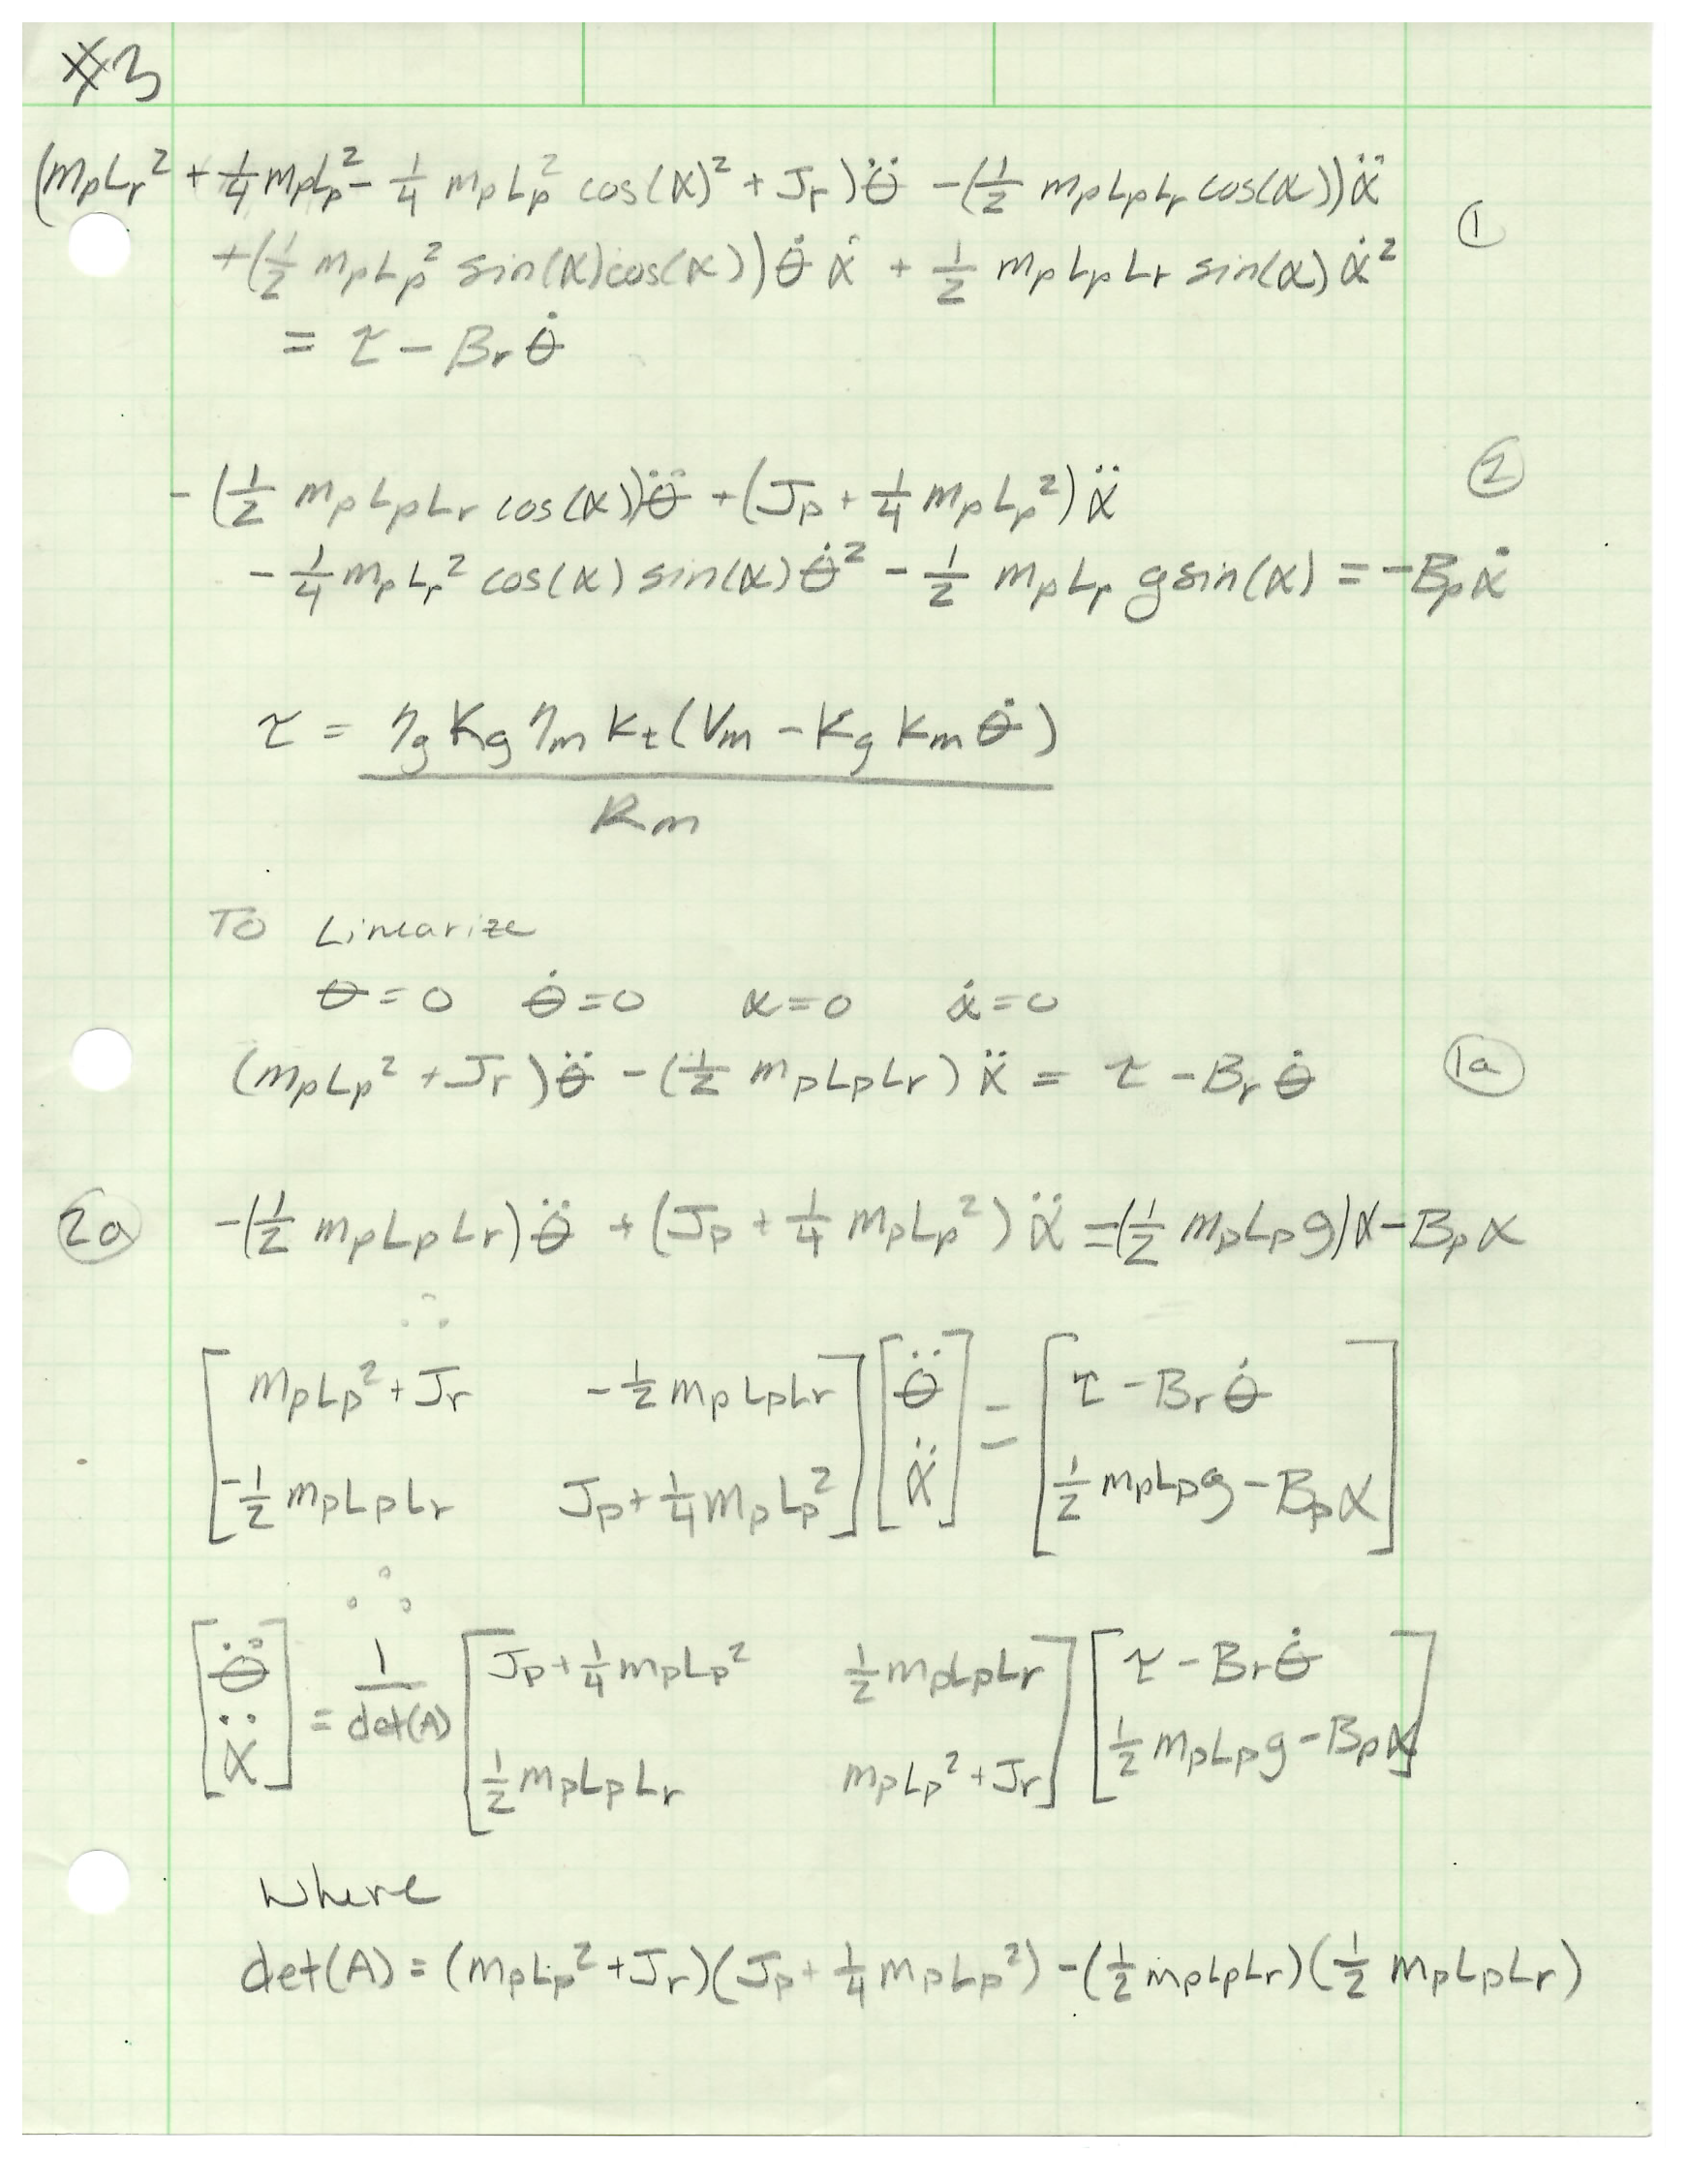 #3
(mpLr² + 1/4 mpLp² - 1/4 mpLp² cos(α)² + Jr)θ̈ - (1/2 mpLpLr cos(α))α̈
①
+(1/2 mpLp² sin(α)cos(α))θ̇ α̇ + 1/2 mpLpLr sin(α) α̇²
= τ - Brθ̇
②
-(1/2 mpLpLr cos(α))θ̈ + (Jp + 1/4 mpLp²)α̈
- 1/4 mpLr² cos(α) sin(α)θ̇² - 1/2 mpLp g sin(α) = -Bpα̇
τ = ηg Kg ηm kt(Vm - Kg km θ̇) / Rm
To Linearize
θ=0 θ̇=0 α=0 α̇=0
(mpLp² + Jr)θ̈ - (1/2 mpLpLr)α̈ = τ - Brθ̇ (1a)
(2a) -(1/2 mpLpLr)θ̈ + (Jp + 1/4 mpLp²)α̈ = (1/2 mpLp g)α - Bpα
∴
[mpLp² + Jr -1/2 mpLpLr] [θ̈] = [τ - Brθ̇]
[-1/2 mpLpLr Jp + 1/4 mpLp²] [α̈] [1/2 mpLpg - Bpα]
∴
[θ̈] = 1/det(A) [Jp + 1/4 mpLp² 1/2 mpLpLr] [τ - Brθ̇]
[α̈] [1/2 mpLpLr mpLp² + Jr] [1/2 mpLpg - Bpα]
Where
det(A) = (mpLp² + Jr)(Jp + 1/4 mpLp²) - (1/2 mpLpLr)(1/2 mpLpLr)